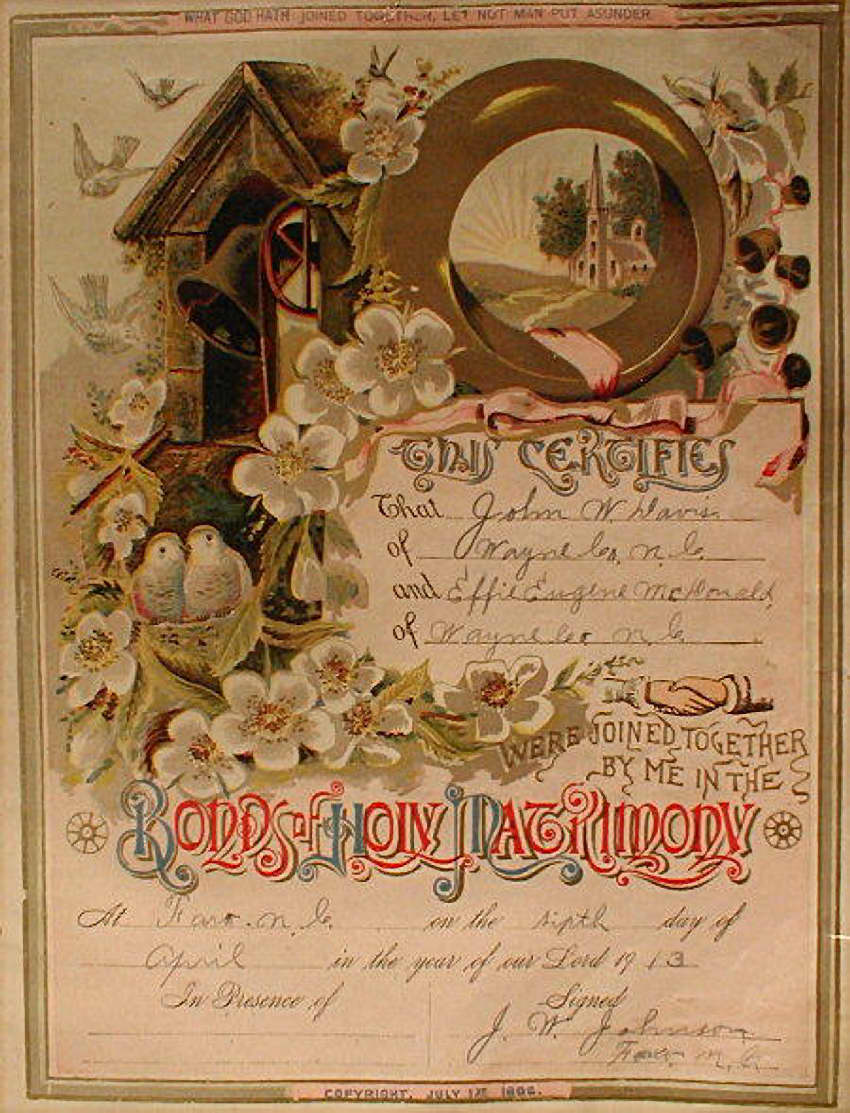 WHAT GOD HATH JOINED TOGETHER, LET NOT MAN PUT ASUNDER
THIS CERTIFIES
That John W Davis
of Wayne Co, N. C.
and Effie Eugene McDonald
of Wayne Co N. C.
WERE JOINED TOGETHER
BY ME IN THE
BONDS of HOLY MATRIMONY
At Faro. N. C. on the sixth day of
April in the year of our Lord 1913
In Presence of
Signed
J. W. Johnson
Faro N. C.
COPYRIGHT, JULY 1ST